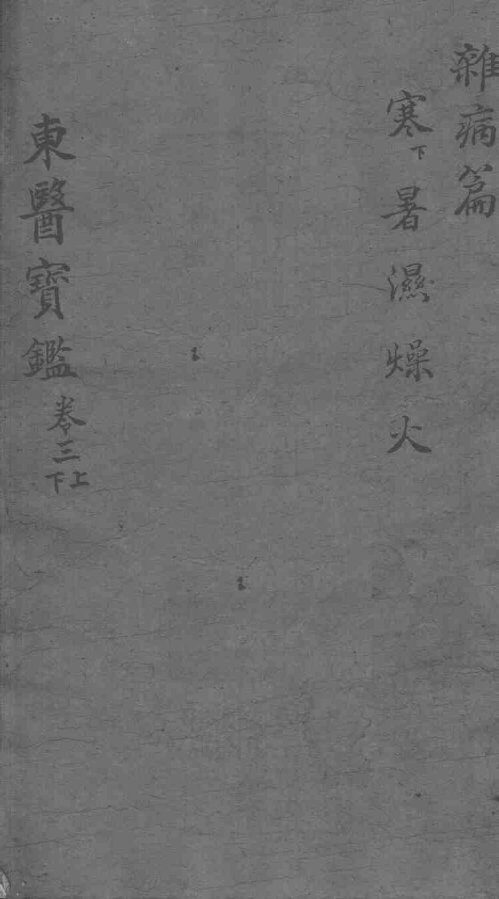 雜病篇
寒下暑濕燥火
東醫寶鑑卷三上下